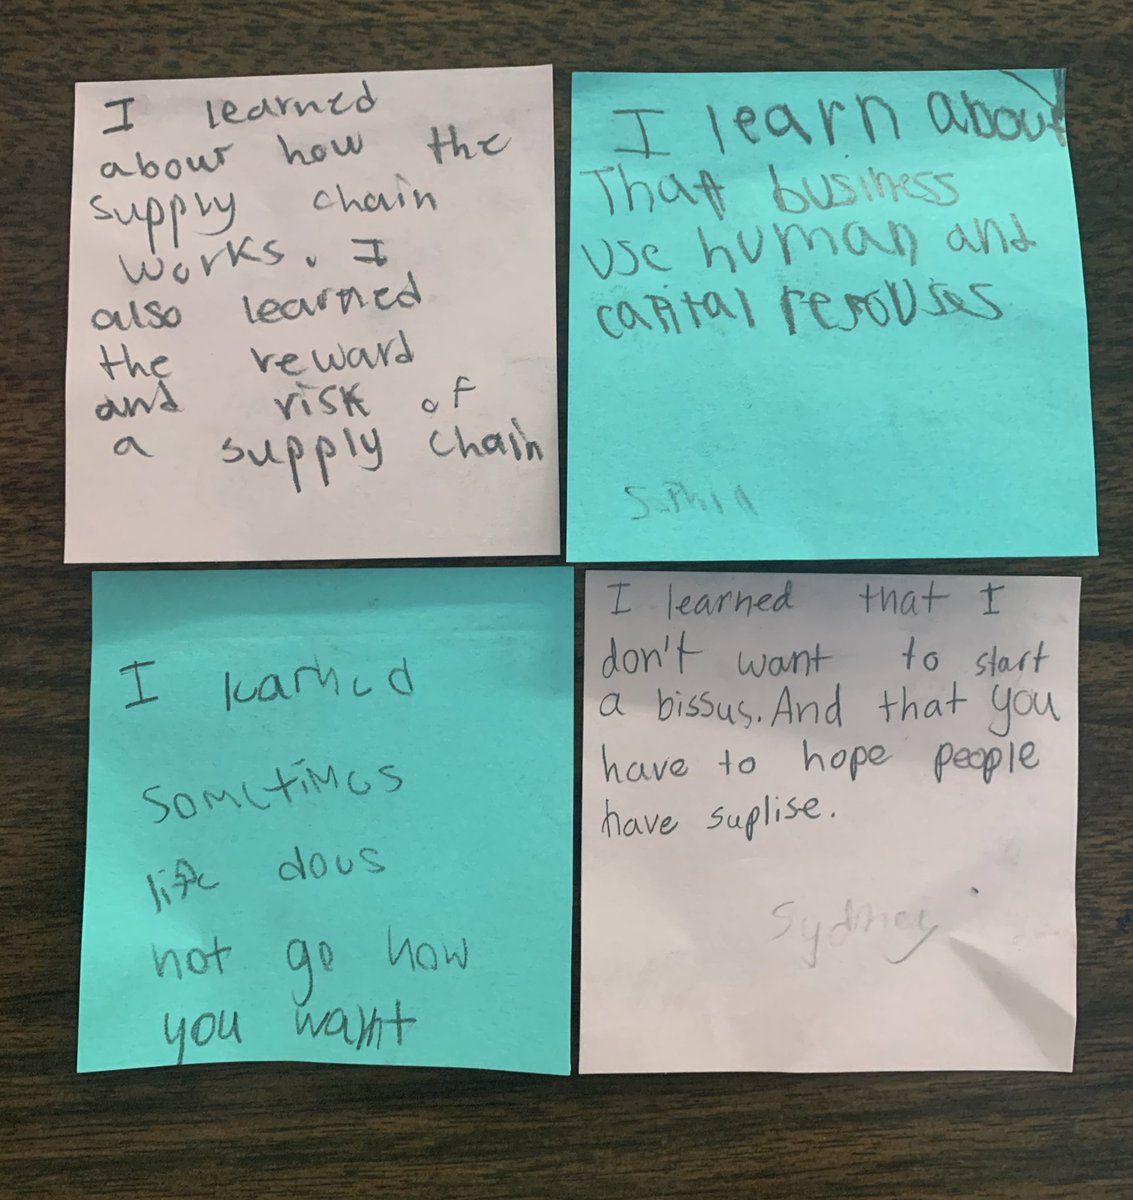 I learned
about how the
supply chain
works. I
also learned
the reward
and risk of
a supply chain
I learn about
That business
use human and
capital resouses
I learned
sometimes
life dous
not go how
you want
I learned that I
don't want to start
a bissus. And that you
have to hope people
have suplise.
Sydney